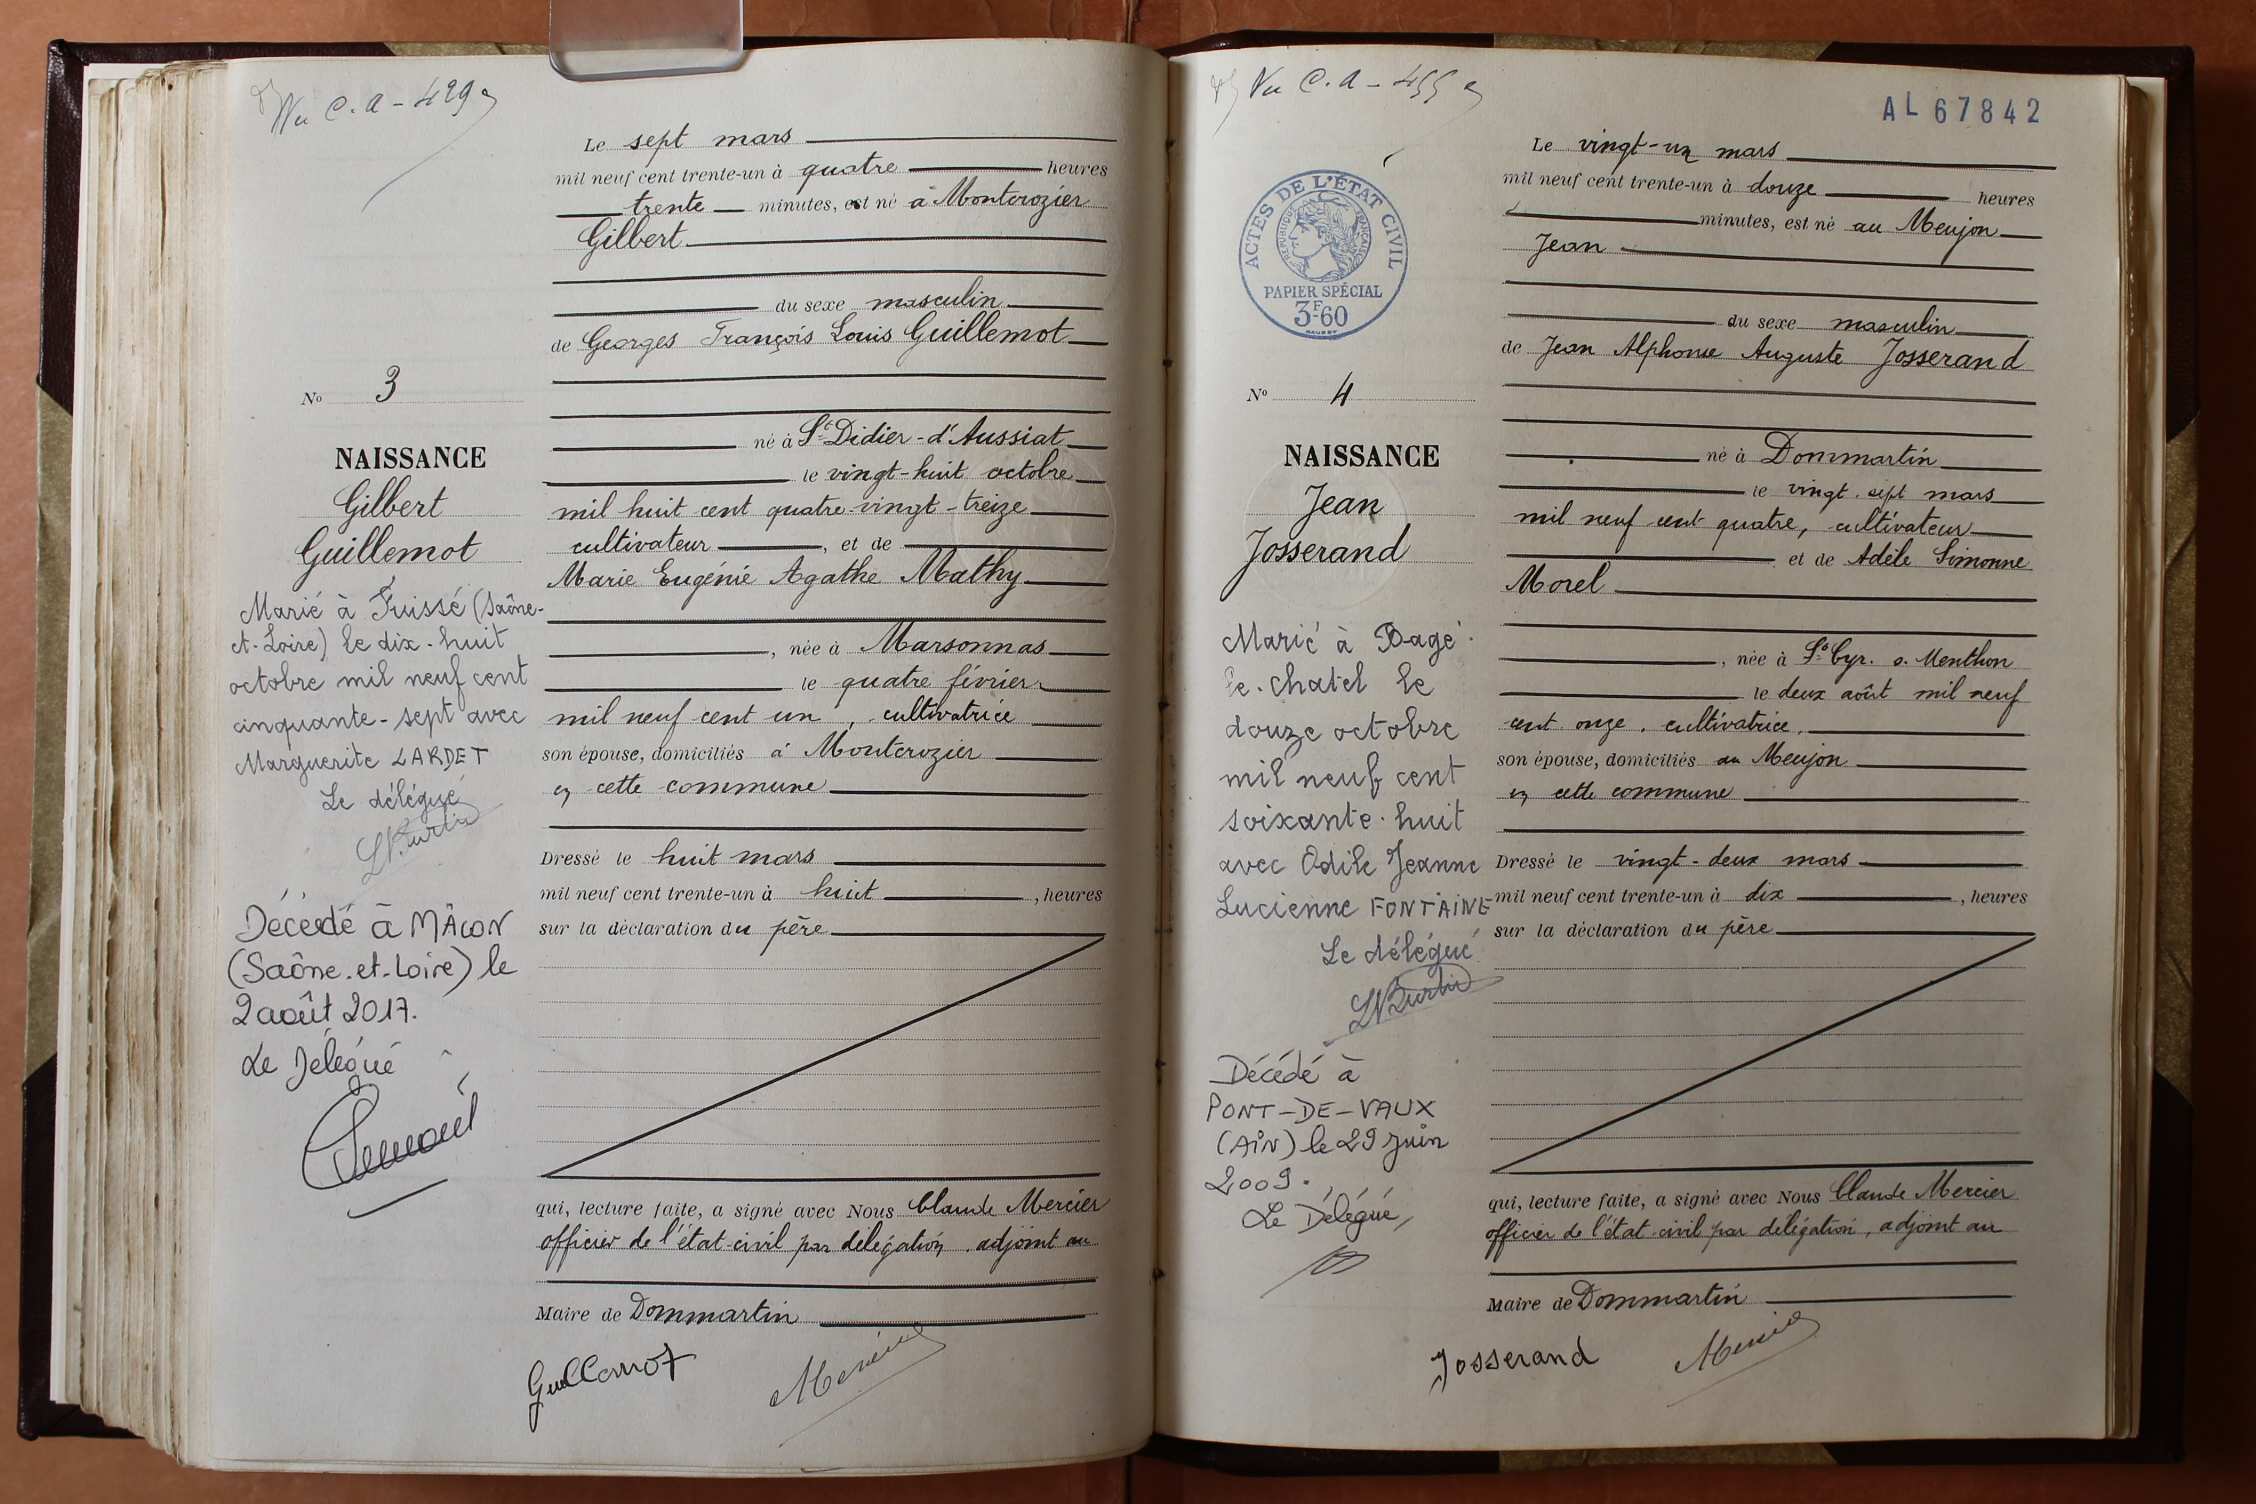 Vu C.A - 429
Le sept mars
mil neuf cent trente-un à quatre heures
trente minutes, est né à Montcrozier
Gilbert
du sexe masculin
de Georges François Louis Guillemot
né à St Didier-d'Aussiat
le vingt-huit octobre
mil huit cent quatre-vingt-treize
cultivateur, et de
Marie Eugénie Agathe Mathy
, née à Marsonnas
le quatre février
mil neuf cent un, cultivatrice
son épouse, domiciliés à Montcrozier
en cette commune
Dressé le huit mars
mil neuf cent trente-un à huit, heures
sur la déclaration du père
qui, lecture faite, a signé avec Nous Claude Mercier
officier de l'état-civil par délégation, adjoint au
Maire de Dommartin
Guillemot
Mercier
No 3
NAISSANCE
Gilbert
Guillemot
Marié à Fuissé (Saône-
et-Loire) le dix-huit
octobre mil neuf cent
cinquante-sept avec
Marguerite LARDET
Le délégué
Décédé à MÂCON
(Saône-et-Loire) le
2 août 2017.
Le Délégué
Vu C.A - 455
AL 67842
ACTES DE L'ÉTAT CIVIL
RÉPUBLIQUE FRANÇAISE
PAPIER SPÉCIAL
3F60
Le vingt-un mars
mil neuf cent trente-un à douze heures
minutes, est né au Meujon
Jean
du sexe masculin
de Jean Alphonse Auguste Josserand
né à Dommartin
le vingt-sept mars
mil neuf cent quatre, cultivateur
et de Adèle Simonne
Morel
, née à St Cyr. s. Menthon
le deux août mil neuf
cent onze, cultivatrice,
son épouse, domiciliés au Meujon
en cette commune
Dressé le vingt-deux mars
mil neuf cent trente-un à dix, heures
sur la déclaration du père
qui, lecture faite, a signé avec Nous Claude Mercier
officier de l'état-civil par délégation, adjoint au
Maire de Dommartin
Josserand
Mercier
No 4
NAISSANCE
Jean
Josserand
Marié à Bagé-
le-Chatel le
douze octobre
mil neuf cent
soixante-huit
avec Odile Jeanne
Lucienne FONTAINE
Le délégué
Décédé à
PONT-DE-VAUX
(AIN) le 29 Juin
2009.
Le Délégué,